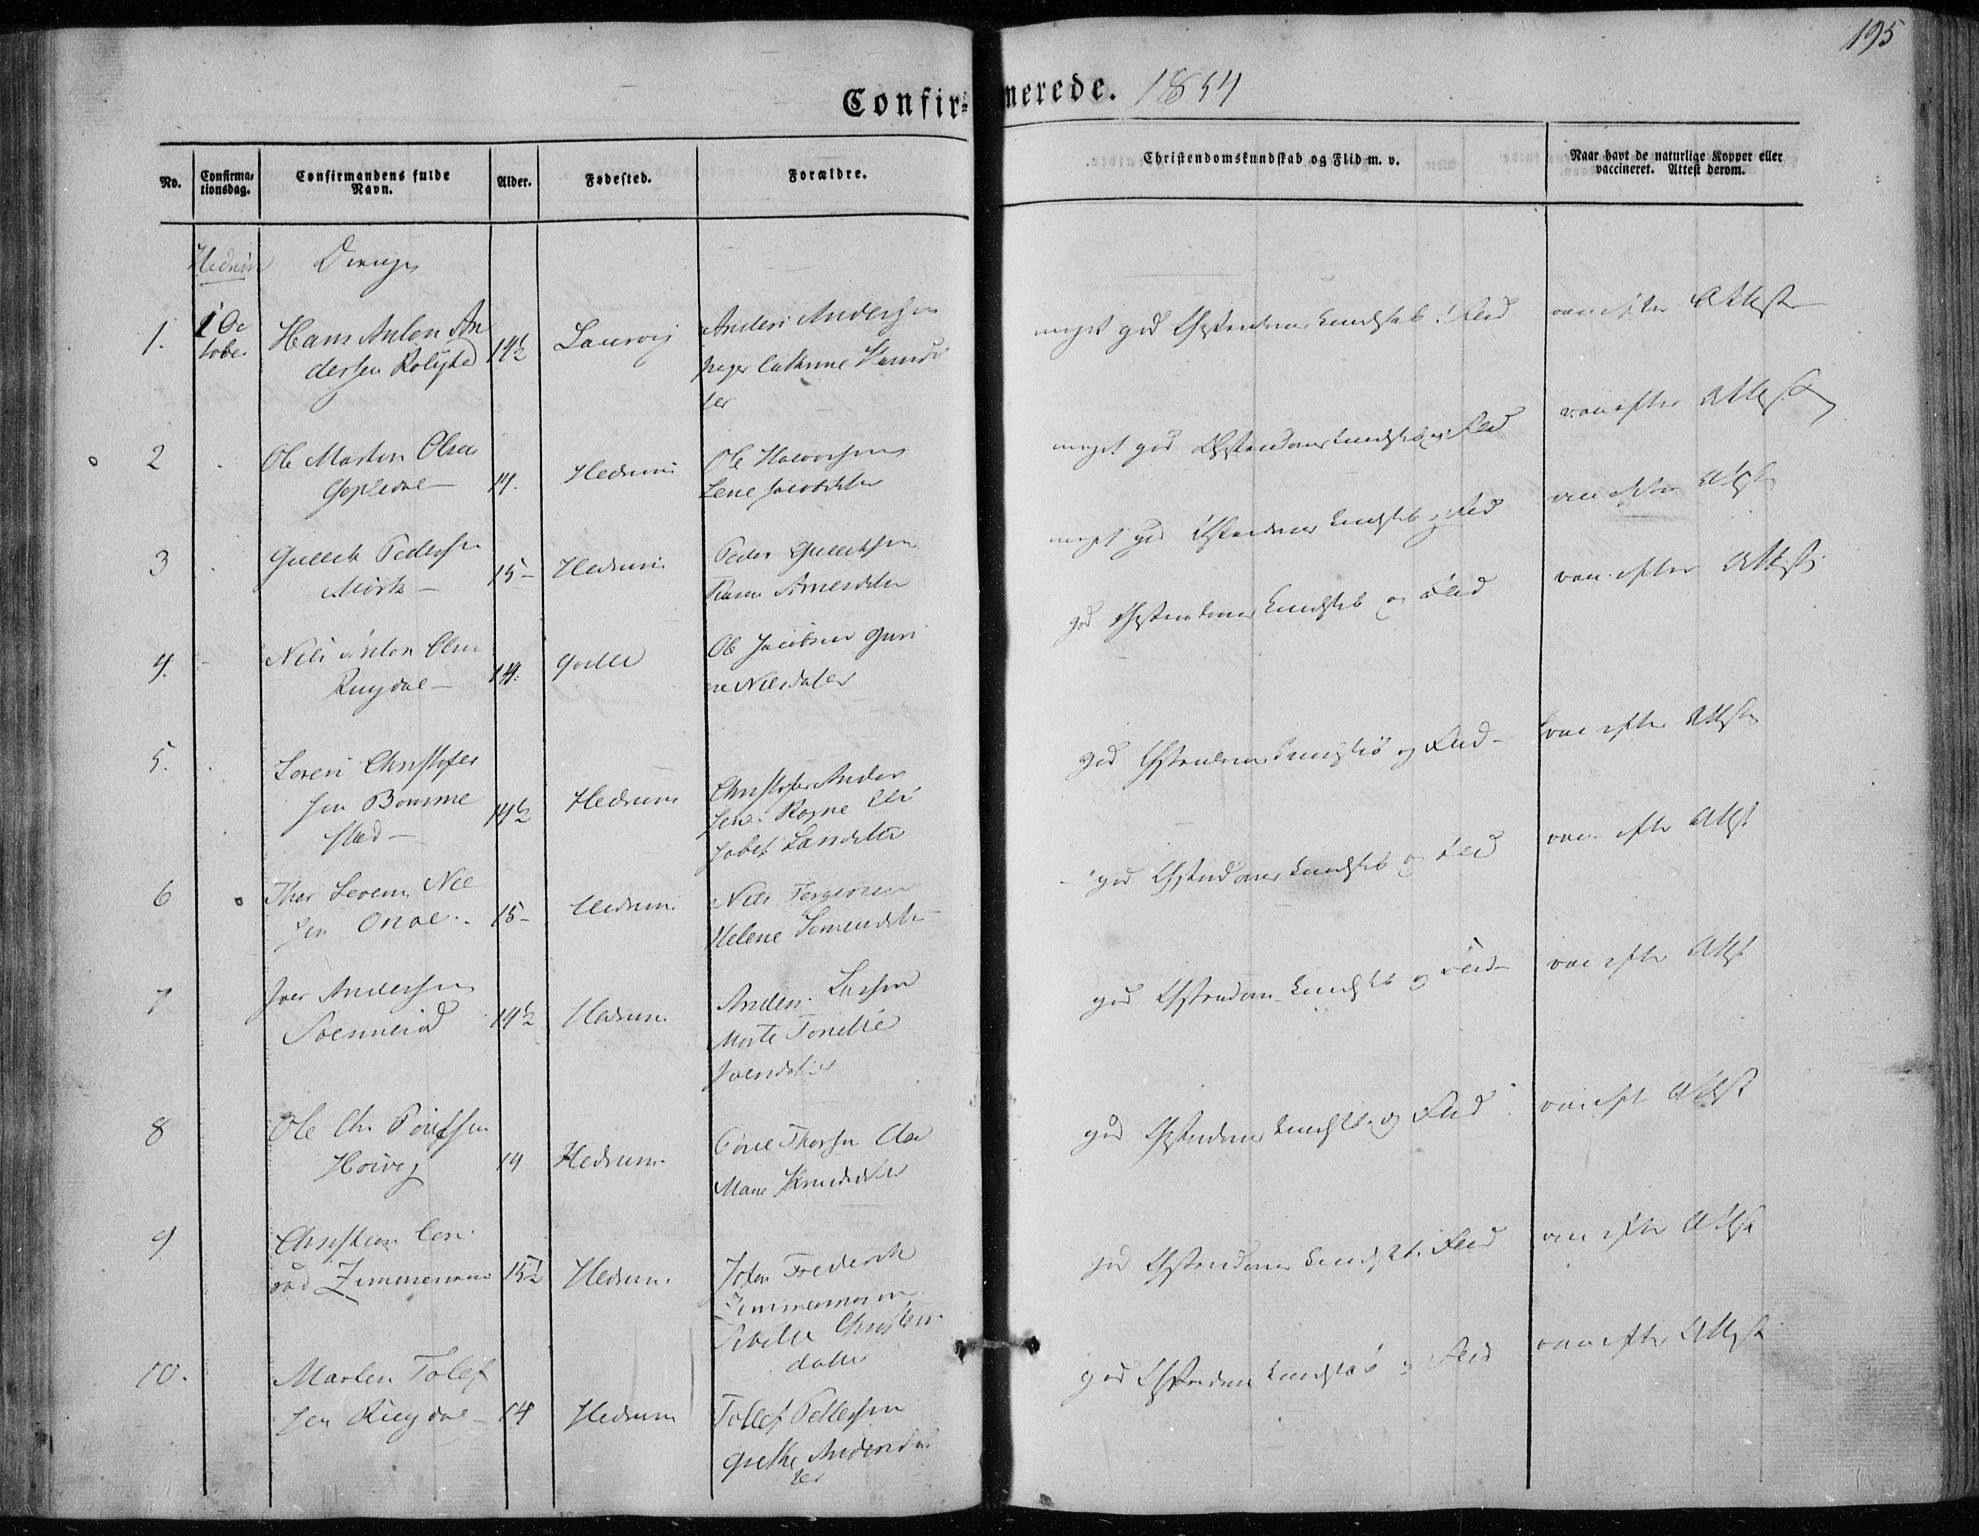 195
Confirmerede. 1854
No.
Confirmationsdag.
Confirmandens fulde Navn.
Alder.
Fødested.
Forældre.
Christendomskundskab og Flid m. v.
Naar havt de naturlige Kopper eller vaccineret. Attest derom.
Hedrum
Drenge
1.
1 Oc
tober
Hans Anton An
dersen Rolighed
14½
Laurvig
Anders Andersen
ter
meget god Christendomskundskab Flid
vac efter Attest
2
Ole Martin Olsen
14.
Hedrum
Ole Halvorsen
Lene Jacobsdatter
meget god Christendomskundskab og Flid
vac efter Attest
3
Gullich Pedersen
15
Hedrum
Peder Gullichsen
Karen Arnesdatter
meget god Christendomskundskab og Flid
vac efter Attest
4.
Nils Anton Olsen
Rugdal
14.
Ole Jacobsen Guri
ne Nilsdatter
god Christendomskundskab og Flid
vac efter Attest
5.
Soren Christofer
sen Bomme
stad
14½
Hedrum
Christofer Ander
sen Eli
sabet Larsdatter
god Christendomskundskab og Flid
vac efter Attest
6
Thor Severin Nil
sen
15
Hedrum
Nils
Helene Simensdatter
god Christendomskundskab og Flid
vac efter Attest
7
Iver Andersen
14½
Hedrum
Anders Larsen
Iversdatter
god Christendomskundskab og Flid
vac efter Attest
8
Ole Chr
14
Hedrum
Thorsen
Maria Knudsdatter
god Christendomskundskab og Flid
vac eft Attest
9
Christian Con
rad Zimmermann
15½
Hedrum
Johan Frederik
Zimmermann
Sibille Christens
datter
god Christendomskundskab Flid
vac efter Attest
10.
Martin Tolef
sen Rugdal
14
Hedrum
Tollef Pedersen
Grethe Andersdat
ter
god Christendomskundskab og Flid
vac efter Attest